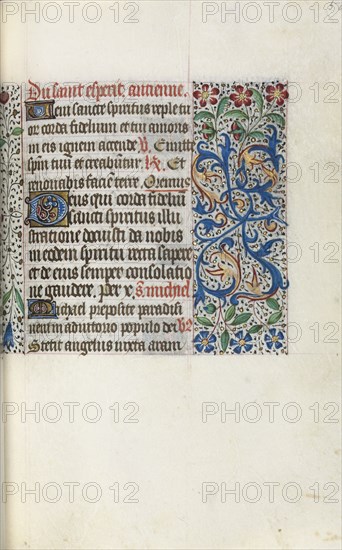 Du saint esperit. antienne.
Veni sancte spiritus reple tu
or. corda fidelium et tui amoris
in eis ignem accende V. Emitte
spm tuu et creabuntur. R. Et
renovabis facie terre. Oremus
Deus qui corda fideliu
sancti spiritus illu
stratione docuisti da nobis
in eodem spiritu recta sapere
et de eius semper consolatio
ne gaudere. per x. s. michiel
Michael preposite paradisi
veni in adiutorio populo dei
Stetit angelus iuxta aram
PHOTO 12